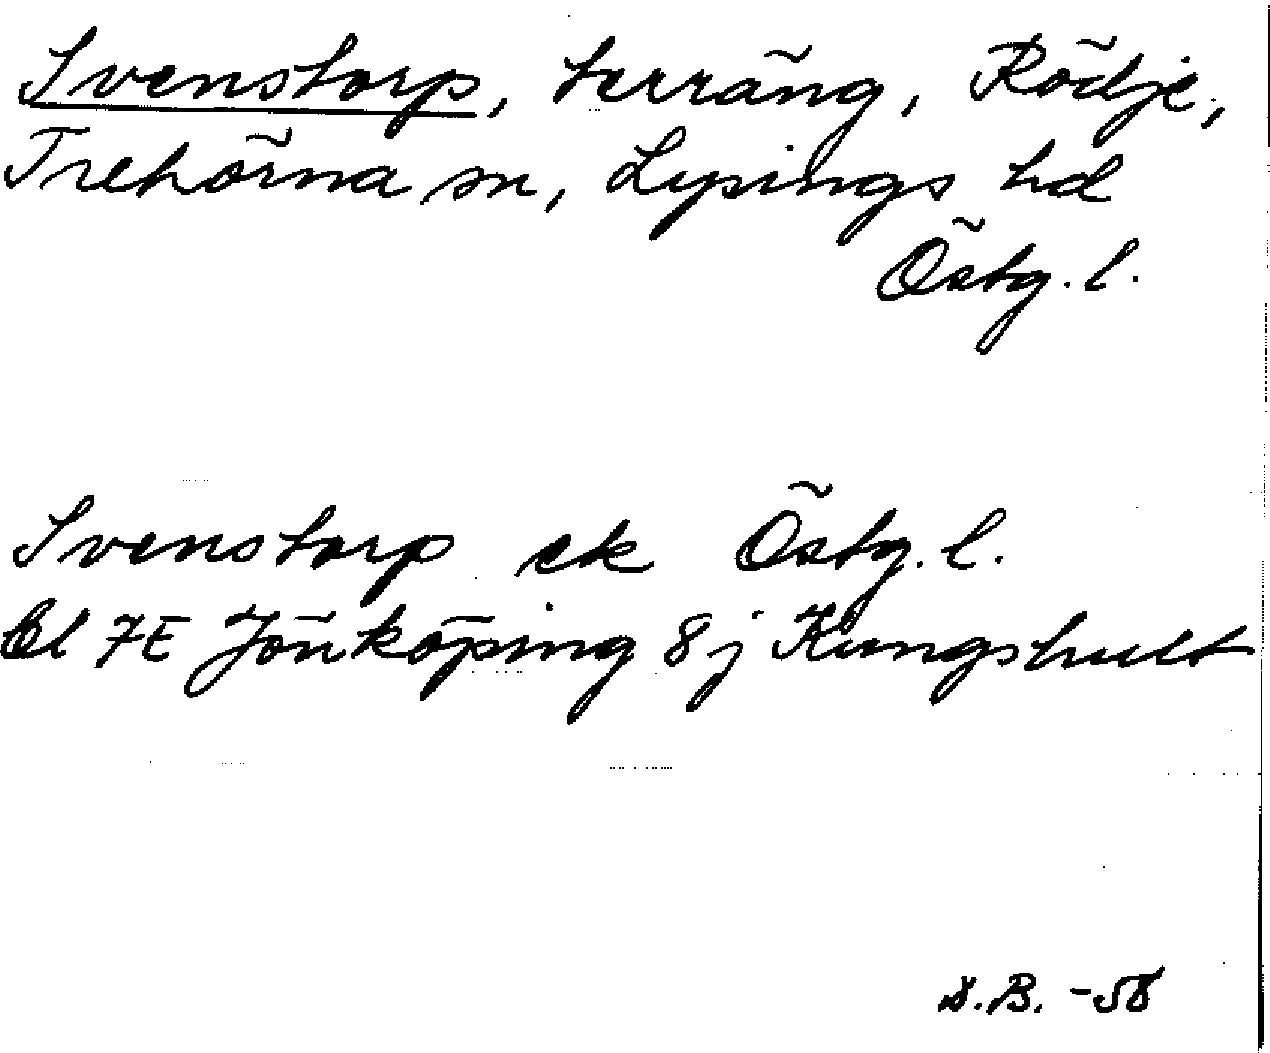 Svenstorp, terräng, Rödje,
Trehörna sn, Lysings hd
Östg. l.
Svenstorp ek Östg. l.
Bl 7E Jönköping 8j Kungshult
S.B. -58